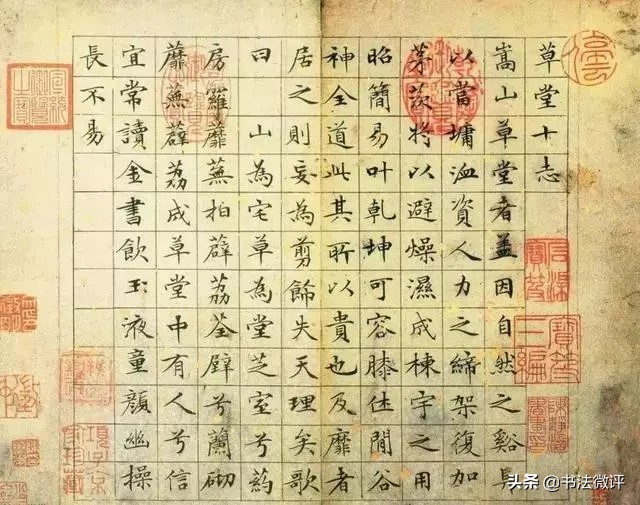 草堂十志
嵩山草堂者盖因自然之谿阜
以當墉洫資人力之締架復加
茅茨将以避燥濕成棟宇之用
昭簡易叶乾坤可容膝休閒谷
神全道此其所以貴也及靡者
居之則妄為剪餙失天理矣歌
曰山為宅草為堂芝室兮葯
房羅蘼蕪拍薜荔荃壁兮蘭砌
蘼蕪薜荔成草堂中有人兮信
宜常讀金書飲玉液童顏幽操
長不易
石渠寶笈
寶笈三編
項子京家珍藏
头条 @书法微评